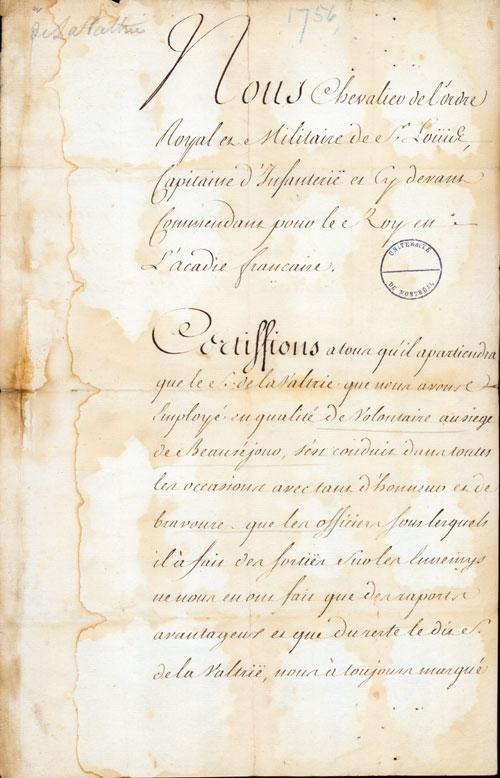 de La Valtrie
1756,
Nous Chevalier de l'ordre
Royal et Militaire de St. Loüis,
Capitaine d'Infanterië et Cy devant
Commendant pour le Roy en
L'acadie francaise.
UNIVERSITÉ
DE MONTRÉAL
Certiffions a tous qu'il apartiendra
que le Sr. de la Valtrie que nous avons
Employé en qualité de Volontaire au siege
de Beausejour, s'est conduit dans toutes
les occasions avec tant d'honneur et de
bravoure que les officiers sous lesquels
il à fait des sortiës sur les Ennemys
ne nous en ont fait que des raports
avantageux et que du reste le dit Sr.
de la Valtrië, nous à toujours marqué